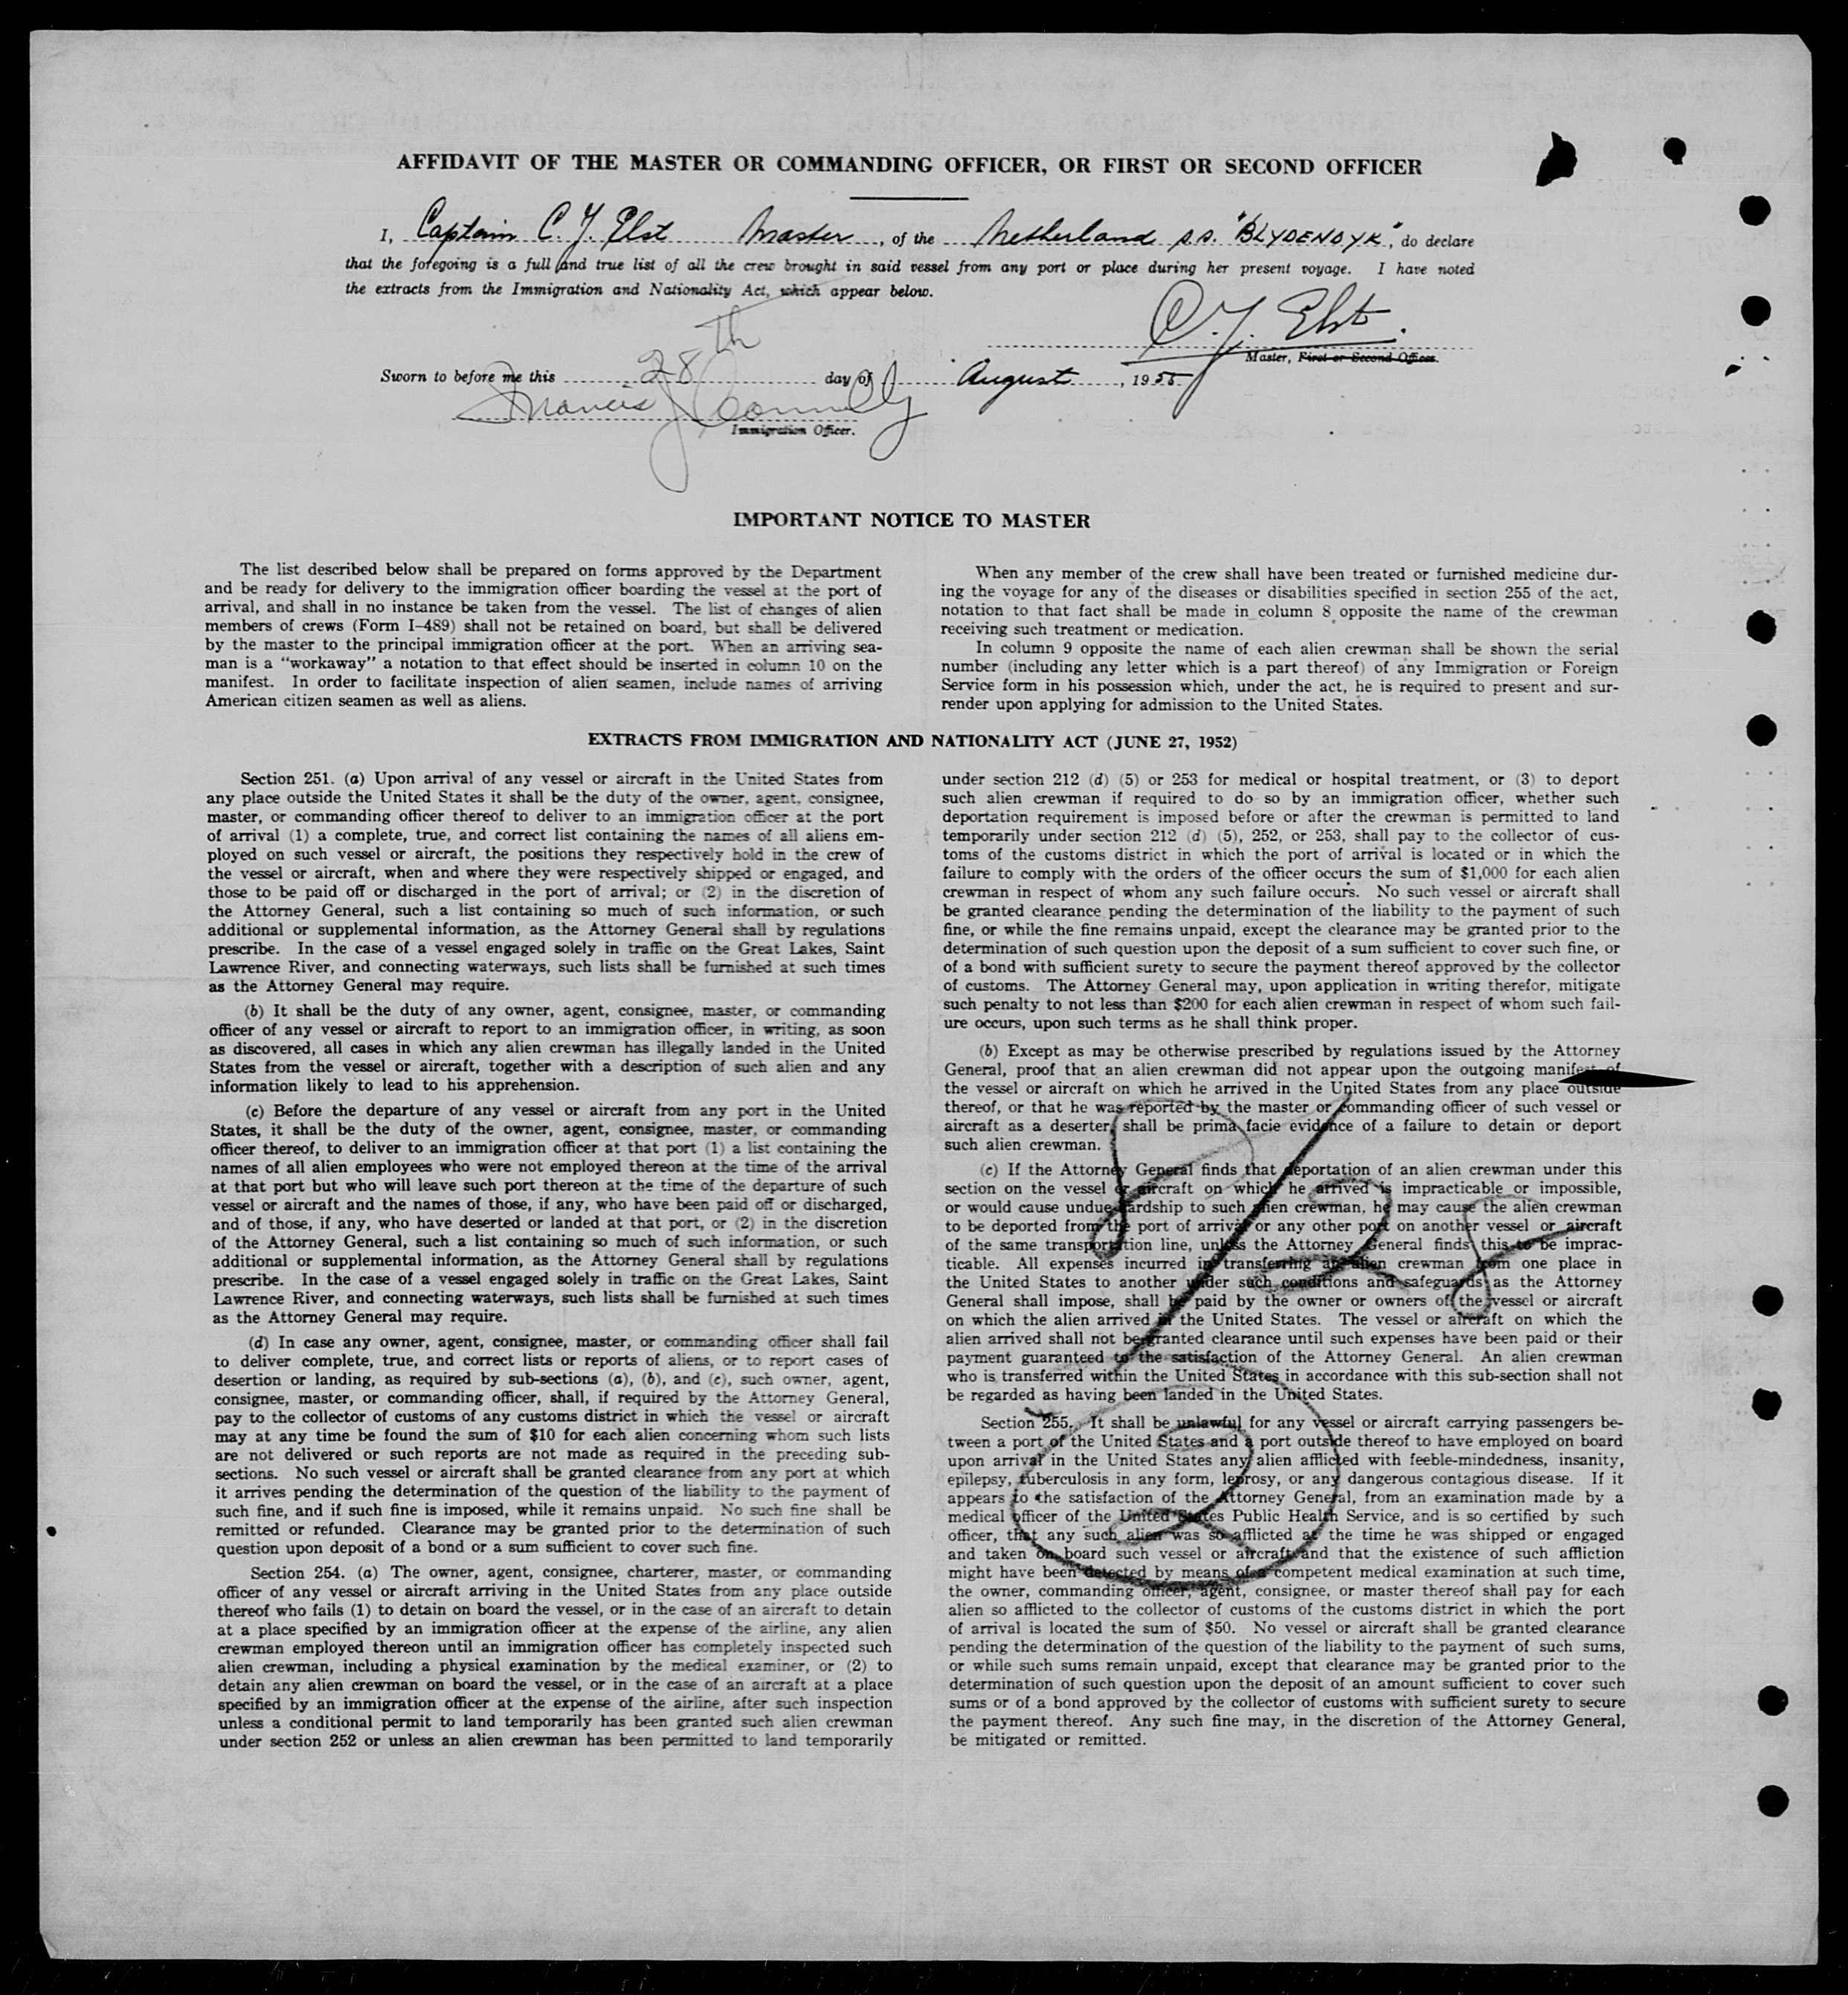 AFFIDAVIT OF THE MASTER OR COMMANDING OFFICER, OR FIRST OR SECOND OFFICER
I, Captain C. J. Elst Master, of the Netherland s.s. "BLYDENDYK", do declare
that the foregoing is a full and true list of all the crew brought in said vessel from any port or place during her present voyage. I have noted
the extracts from the Immigration and Nationality Act, which appear below.
C. J. Elst.
Master, First or Second Officer.
Sworn to before me this 28th day of August, 1955
Francis J Connolly
Immigration Officer.
IMPORTANT NOTICE TO MASTER
The list described below shall be prepared on forms approved by the Department
and be ready for delivery to the immigration officer boarding the vessel at the port of
arrival, and shall in no instance be taken from the vessel. The list of changes of alien
members of crews (Form I–489) shall not be retained on board, but shall be delivered
by the master to the principal immigration officer at the port. When an arriving sea-
man is a “workaway” a notation to that effect should be inserted in column 10 on the
manifest. In order to facilitate inspection of alien seamen, include names of arriving
American citizen seamen as well as aliens.
When any member of the crew shall have been treated or furnished medicine dur-
ing the voyage for any of the diseases or disabilities specified in section 255 of the act,
notation to that fact shall be made in column 8 opposite the name of the crewman
receiving such treatment or medication.
In column 9 opposite the name of each alien crewman shall be shown the serial
number (including any letter which is a part thereof) of any Immigration or Foreign
Service form in his possession which, under the act, he is required to present and sur-
render upon applying for admission to the United States.
EXTRACTS FROM IMMIGRATION AND NATIONALITY ACT (JUNE 27, 1952)
Section 251. (a) Upon arrival of any vessel or aircraft in the United States from
any place outside the United States it shall be the duty of the owner, agent, consignee,
master, or commanding officer thereof to deliver to an immigration officer at the port
of arrival (1) a complete, true, and correct list containing the names of all aliens em-
ployed on such vessel or aircraft, the positions they respectively hold in the crew of
the vessel or aircraft, when and where they were respectively shipped or engaged, and
those to be paid off or discharged in the port of arrival; or (2) in the discretion of
the Attorney General, such a list containing so much of such information, or such
additional or supplemental information, as the Attorney General shall by regulations
prescribe. In the case of a vessel engaged solely in traffic on the Great Lakes, Saint
Lawrence River, and connecting waterways, such lists shall be furnished at such times
as the Attorney General may require.
(b) It shall be the duty of any owner, agent, consignee, master, or commanding
officer of any vessel or aircraft to report to an immigration officer, in writing, as soon
as discovered, all cases in which any alien crewman has illegally landed in the United
States from the vessel or aircraft, together with a description of such alien and any
information likely to lead to his apprehension.
(c) Before the departure of any vessel or aircraft from any port in the United
States, it shall be the duty of the owner, agent, consignee, master, or commanding
officer thereof, to deliver to an immigration officer at that port (1) a list containing the
names of all alien employees who were not employed thereon at the time of the arrival
at that port but who will leave such port thereon at the time of the departure of such
vessel or aircraft and the names of those, if any, who have been paid off or discharged,
and of those, if any, who have deserted or landed at that port, or (2) in the discretion
of the Attorney General, such a list containing so much of such information, or such
additional or supplemental information, as the Attorney General shall by regulations
prescribe. In the case of a vessel engaged solely in traffic on the Great Lakes, Saint
Lawrence River, and connecting waterways, such lists shall be furnished at such times
as the Attorney General may require.
(d) In case any owner, agent, consignee, master, or commanding officer shall fail
to deliver complete, true, and correct lists or reports of aliens, or to report cases of
desertion or landing, as required by sub-sections (a), (b), and (c), such owner, agent,
consignee, master, or commanding officer, shall, if required by the Attorney General,
pay to the collector of customs of any customs district in which the vessel or aircraft
may at any time be found the sum of $10 for each alien concerning whom such lists
are not delivered or such reports are not made as required in the preceding sub-
sections. No such vessel or aircraft shall be granted clearance from any port at which
it arrives pending the determination of the question of the liability to the payment of
such fine, and if such fine is imposed, while it remains unpaid. No such fine shall be
remitted or refunded. Clearance may be granted prior to the determination of such
question upon deposit of a bond or a sum sufficient to cover such fine.
Section 254. (a) The owner, agent, consignee, charterer, master, or commanding
officer of any vessel or aircraft arriving in the United States from any place outside
thereof who fails (1) to detain on board the vessel, or in the case of an aircraft to detain
at a place specified by an immigration officer at the expense of the airline, any alien
crewman employed thereon until an immigration officer has completely inspected such
alien crewman, including a physical examination by the medical examiner, or (2) to
detain any alien crewman on board the vessel, or in the case of an aircraft at a place
specified by an immigration officer at the expense of the airline, after such inspection
unless a conditional permit to land temporarily has been granted such alien crewman
under section 252 or unless an alien crewman has been permitted to land temporarily
under section 212 (d) (5) or 253 for medical or hospital treatment, or (3) to deport
such alien crewman if required to do so by an immigration officer, whether such
deportation requirement is imposed before or after the crewman is permitted to land
temporarily under section 212 (d) (5), 252, or 253, shall pay to the collector of cus-
toms of the customs district in which the port of arrival is located or in which the
failure to comply with the orders of the officer occurs the sum of $1,000 for each alien
crewman in respect of whom any such failure occurs. No such vessel or aircraft shall
be granted clearance pending the determination of the liability to the payment of such
fine, or while the fine remains unpaid, except the clearance may be granted prior to the
determination of such question upon the deposit of a sum sufficient to cover such fine, or
of a bond with sufficient surety to secure the payment thereof approved by the collector
of customs. The Attorney General may, upon application in writing therefor, mitigate
such penalty to not less than $200 for each alien crewman in respect of whom such fail-
ure occurs, upon such terms as he shall think proper.
(b) Except as may be otherwise prescribed by regulations issued by the Attorney
General, proof that an alien crewman did not appear upon the outgoing manifest of
the vessel or aircraft on which he arrived in the United States from any place outside
thereof, or that he was reported by the master or commanding officer of such vessel or
aircraft as a deserter, shall be prima facie evidence of a failure to detain or deport
such alien crewman.
(c) If the Attorney General finds that deportation of an alien crewman under this
section on the vessel or aircraft on which he arrived is impracticable or impossible,
or would cause undue hardship to such alien crewman, he may cause the alien crewman
to be deported from the port of arrival or any other port on another vessel or aircraft
of the same transportation line, unless the Attorney General finds this to be imprac-
ticable. All expenses incurred in transferring an alien crewman from one place in
the United States to another under such conditions and safeguards as the Attorney
General shall impose, shall be paid by the owner or owners of the vessel or aircraft
on which the alien arrived in the United States. The vessel or aircraft on which the
alien arrived shall not be granted clearance until such expenses have been paid or their
payment guaranteed to the satisfaction of the Attorney General. An alien crewman
who is transferred within the United States in accordance with this sub-section shall not
be regarded as having been landed in the United States.
Section 255. It shall be unlawful for any vessel or aircraft carrying passengers be-
tween a port of the United States and a port outside thereof to have employed on board
upon arrival in the United States any alien afflicted with feeble-mindedness, insanity,
epilepsy, tuberculosis in any form, leprosy, or any dangerous contagious disease. If it
appears to the satisfaction of the Attorney General, from an examination made by a
medical officer of the United States Public Health Service, and is so certified by such
officer, that any such alien was so afflicted at the time he was shipped or engaged
and taken on board such vessel or aircraft and that the existence of such affliction
might have been detected by means of a competent medical examination at such time,
the owner, commanding officer, agent, consignee, or master thereof shall pay for each
alien so afflicted to the collector of customs of the customs district in which the port
of arrival is located the sum of $50. No vessel or aircraft shall be granted clearance
pending the determination of the question of the liability to the payment of such sums,
or while such sums remain unpaid, except that clearance may be granted prior to the
determination of such question upon the deposit of an amount sufficient to cover such
sums or of a bond approved by the collector of customs with sufficient surety to secure
the payment thereof. Any such fine may, in the discretion of the Attorney General,
be mitigated or remitted.
8/28
2